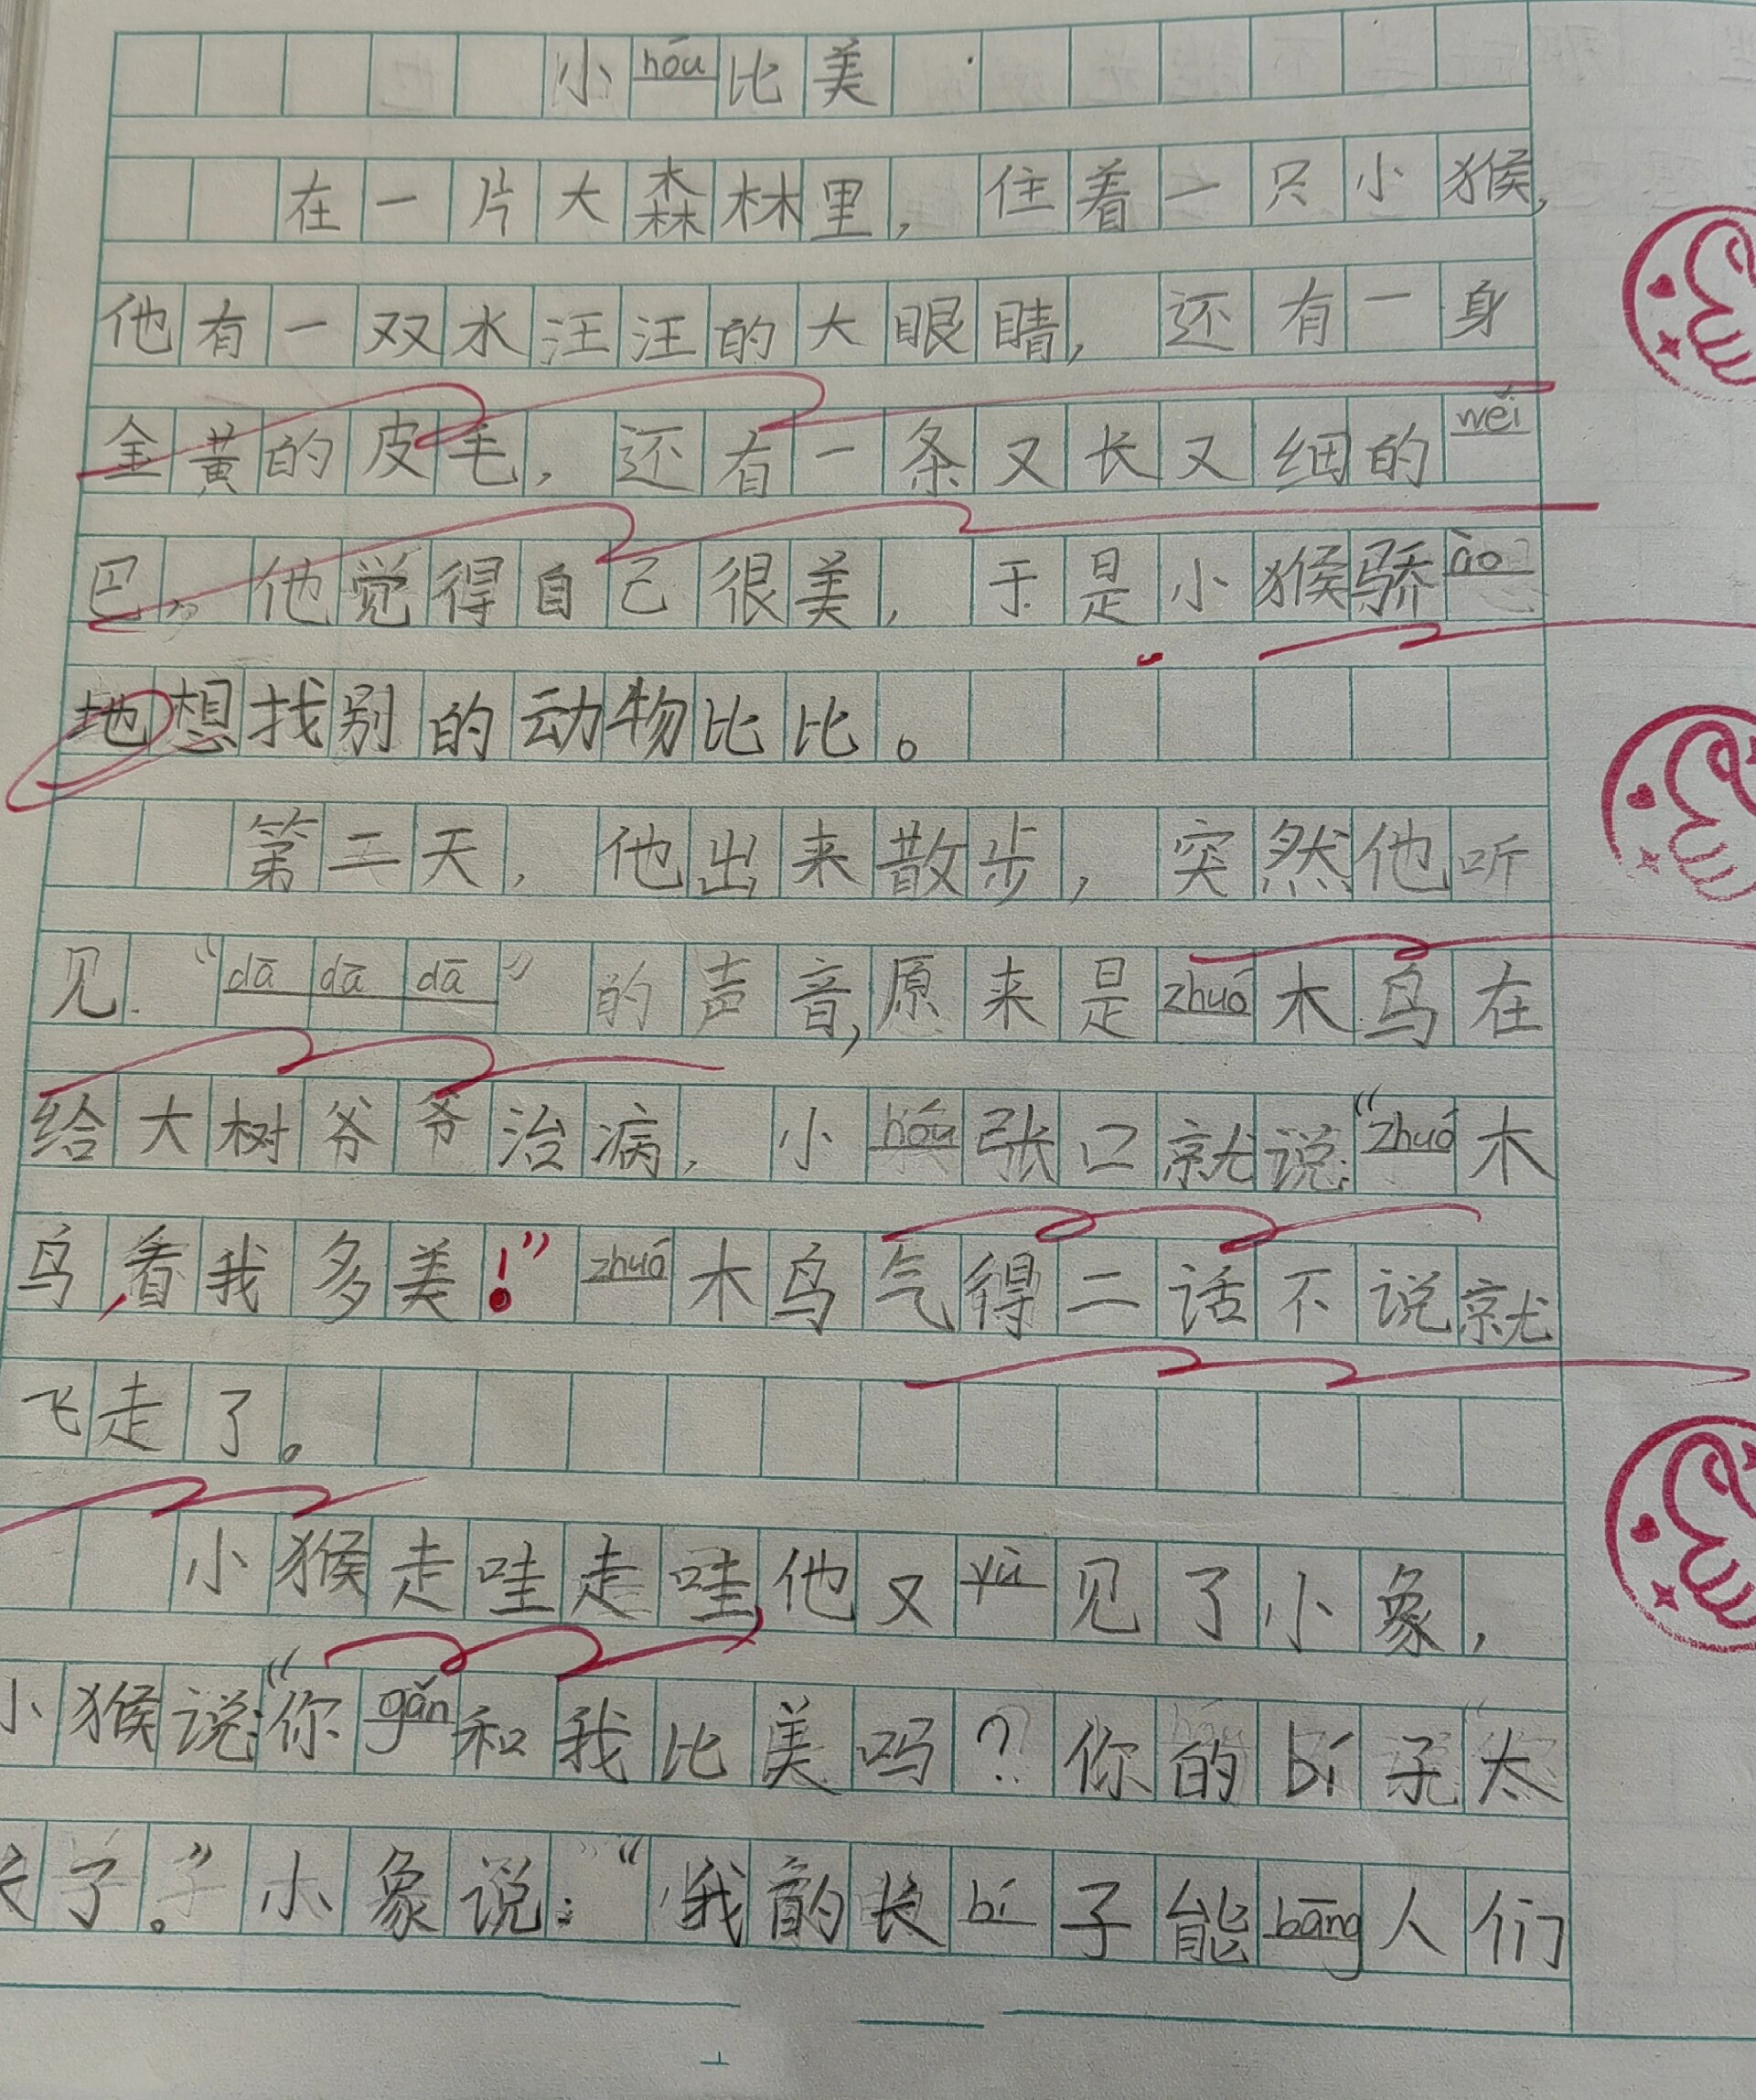 小hóu比美
在一片大森林里，住着一只小猴，
他有一双水汪汪的大眼睛，还有一身
金黄的皮毛，还有一条又长又细的wěi
巴，他觉得自己很美，于是小猴骄ào
地想找别的动物比比。
第二天，他出来散步，突然他听
见“dā dā dā”的声音，原来是zhuó木鸟在
给大树爷爷治病，小hóu张口就说：“zhuó木
鸟，看我多美！”zhuó木鸟气得二话不说就
飞走了。
小猴走哇走哇，他又yù见了小象，
小猴说：“你gǎn和我比美吗？你的bí子太
长了。”小象说：“我的长bí子能bāng人们